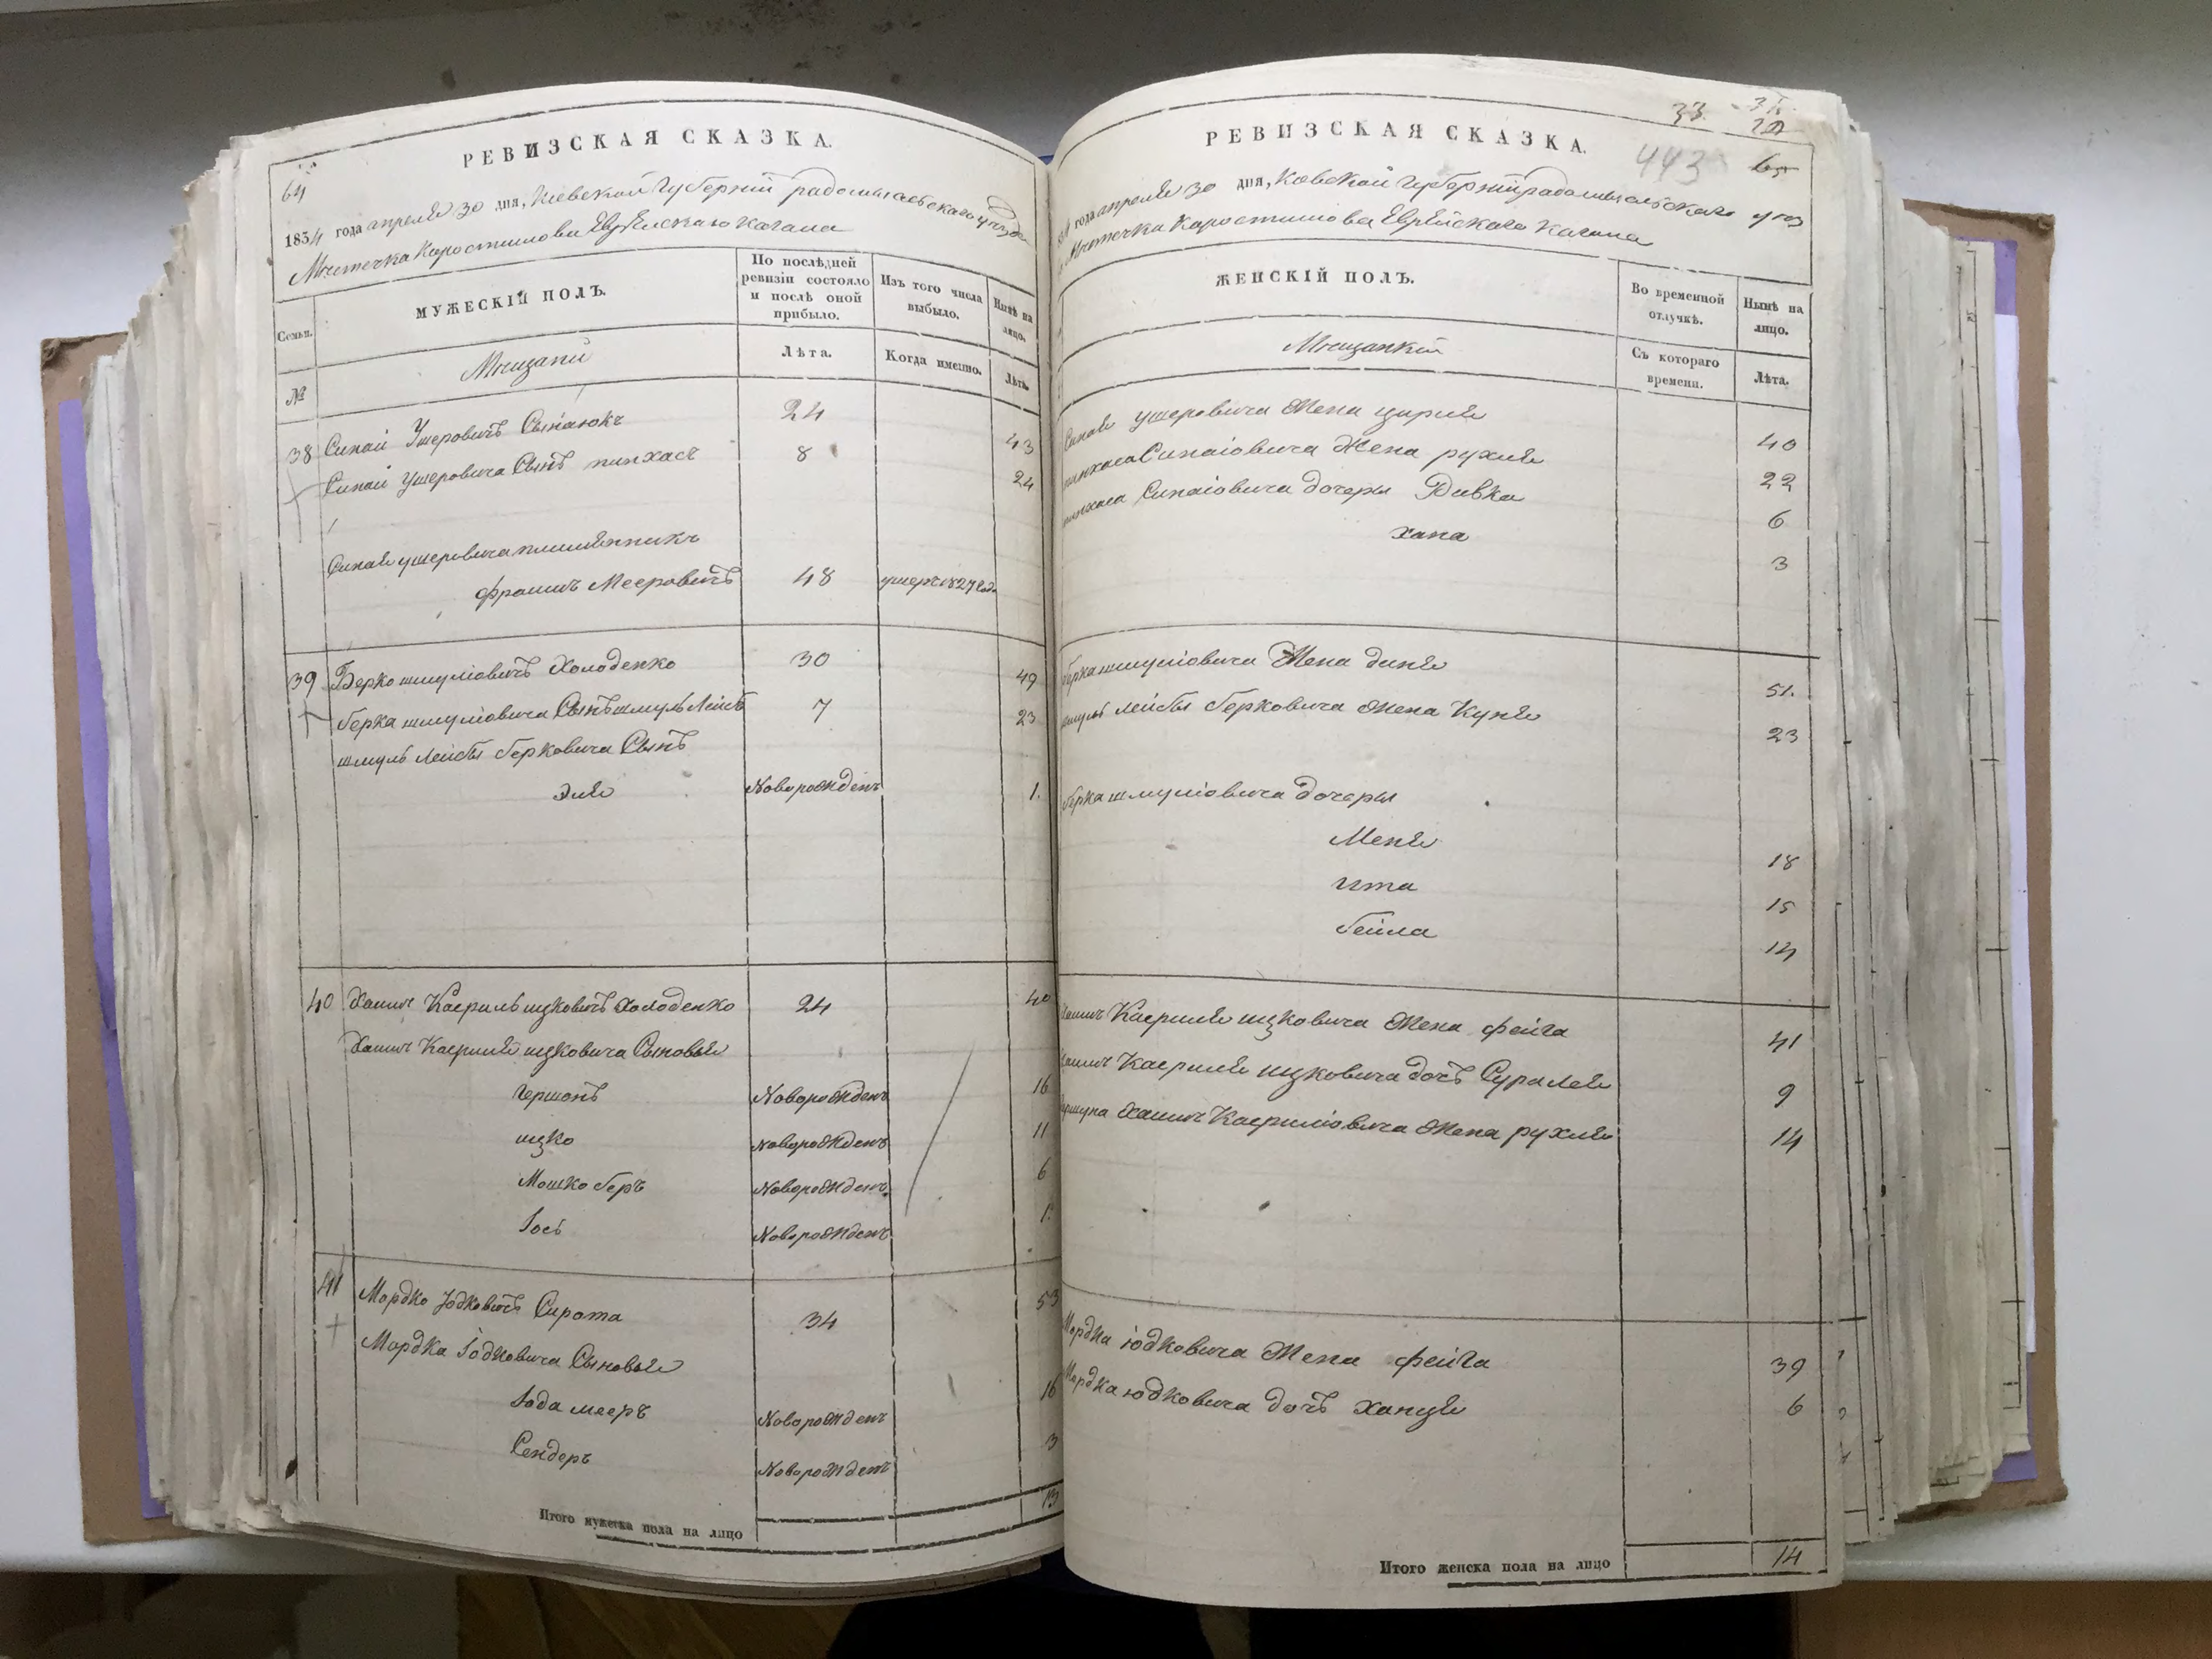 РЕВИЗСКАЯ СКАЗКА.
64
1834 года апреля 30 дня, Киевской Губернiи радомысльскаго уезда
Местечка Коростишова Еврейскаго Кагала
Семьи.
МУЖЕСКIЙ ПОЛЪ.
По послѣдней ревизiи состояло и послѣ оной прибыло.
Изъ того числа выбыло.
Нынѣ на лицо.
№
Мещани
Лѣта.
Когда именно.
Лѣта.
38 Синай Ушеровичъ Сынаюкъ 24 43
Синай Ушеровича Сынъ пинхасъ 8 24
Синая ушеровича племенникъ
фроимъ Мееровичъ 48 умеръ 1827 года
39 Берко шмулiовичъ Холоденко 30 49
берка шмулiовича Сынъ шмуль Лейба 7 23
шмуль Лейбы берковича Сынъ
Эля Новорожденъ 1.
40 Хаимъ Касриль ицковичъ Холоденко 24 40
Хаимъ Касриля ицковича Сыновья
Гершонъ Новорожденъ 16
ицко Новорожденъ 11
Мошко беръ Новорожденъ 6
Iось Новорожденъ 1.
41 Мордко Iодковичъ Сирота 34 53
Мордка Iодковича Сыновья
Iода мееръ Новорожденъ 16
Сендеръ Новорожденъ 3
Итого мужеска пола на лицо 13
33
443
65
РЕВИЗСКАЯ СКАЗКА.
года апреля 30 дня, Киевской Губернiи радомысльскаго уез
Местечка Коростишова Еврейскаго Кагала
ЖЕНСКIЙ ПОЛЪ.
Во временной отлучкѣ.
Нынѣ на лицо.
Мещанкiи
Съ котораго времени.
Лѣта.
Синая ушеровича Жена цирля 40
пинхаса Синаiовича Жена рухля 22
пинхаса Синаiовича дочеры Ривка 6
хана 3
берка шмулiовича Жена диня 51.
шмуль лейбы берковича Жена Куня 23
берка шмулiовича дочеры
Меня 18
Ита 15
бейла 14
Хаимъ Касриля ицковича Жена фейга 41
Хаимъ Касриля ицковича дочъ Сура лея 9
Гершуна Хаимъ Касрилiовича Жена рухля 14
Мордка iодковича Жена фейга 39
Мордка юдковича дочъ ханця 6
Итого женска пола на лицо 14